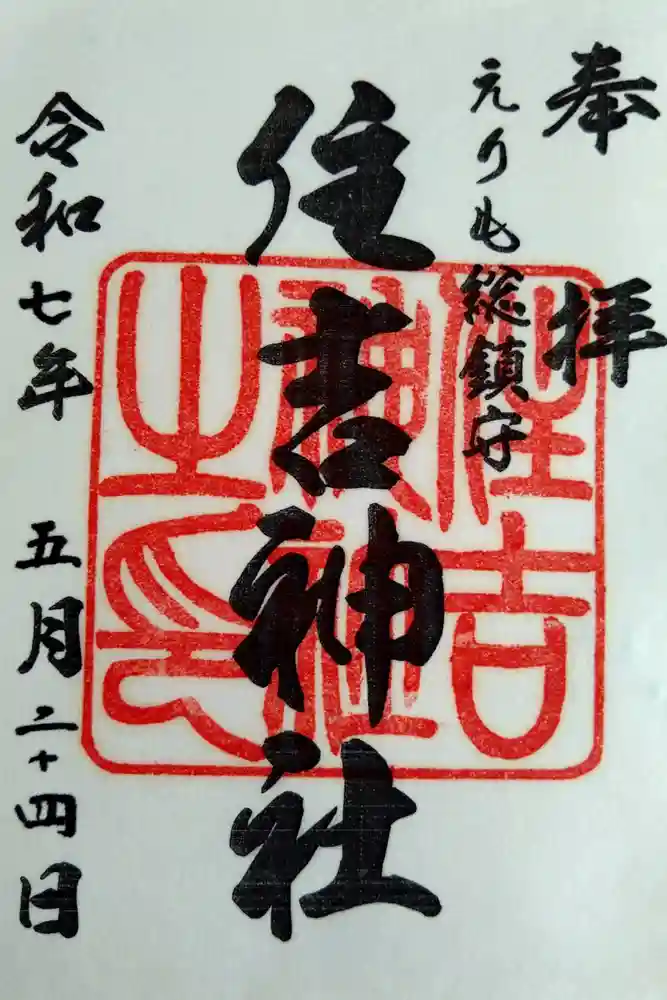 奉拝
えりも総鎮守
住吉神社
住吉
神社
之印
令和七年 五月二十四日